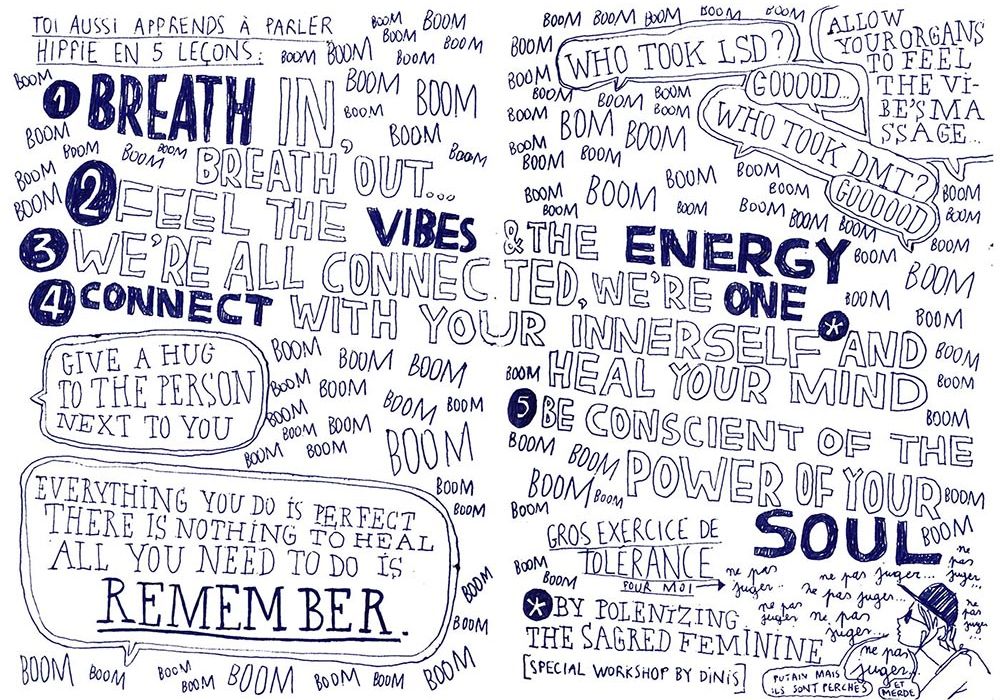 TOI AUSSI APPRENDS À PARLER
HIPPIE EN 5 LEÇONS:
BOOM BOOM BOOM BOOM
BOOM BOOM BOOM
BOOM BOOM BOOM BOOM BOOM
BOOM BOOM
WHO TOOK LSD?
GOOOOD...
ALLOW
YOUR ORGANS
TO FEEL
THE VI-
BE'S MA
SSAGE...
BOOM BOOM
1 BREATH IN,
BOOM BOOM
BOOM BOOM BOOM BOOM
BOOM BOOM BOOM BOOM
WHO TOOK DMT?
GOOOOOD
BOOM BOOM BOOM BOOM
BREATH OUT...
BOOM BOM BOOM
BOOM BOOM BOOM
BOOM BOOM BOOM BOOM
2 FEEL THE VIBES & THE ENERGY
BOOM BOOM BOOM BOOM
BOOM BOOM BOOM BOOM
3 WE'RE ALL CONNECTED, WE'RE ONE
BOOM BOOM BOOM
4 CONNECT WITH YOUR INNERSELF * AND
BOOM BOOM
HEAL YOUR MIND
BOOM BOOM
GIVE A HUG
TO THE PERSON
NEXT TO YOU
BOOM BOOM BOOM
BOOM BOOM BOOM BOOM
BOOM BOOM BOOM
BOOM BOOM BOOM
5 BE CONSCIENT OF THE
BOOM BOOM
POWER OF YOUR
BOOM BOOM BOOM
SOUL
BOOM BOOM
EVERYTHING YOU DO IS PERFECT
THERE IS NOTHING TO HEAL
ALL YOU NEED TO DO IS
REMEMBER.
BOOM BOOM
BOOM BOOM
BOOM BOOM BOOM BOOM BOOM BOOM BOOM
GROS EXERCICE DE
TOLÉRANCE
POUR MOI
BOOM BOOM
ne pas juger...
ne pas juger...
ne pas juger...
ne pas juger...
ne pas juger
ne pas juger...
ne pas juger...
ne pas juger...
* BY POLENIZING
THE SACRED FEMININE
[SPECIAL WORKSHOP BY DINIS]
PUTAIN MAIS
ILS SONT PERCHÉS
ET
MERDE